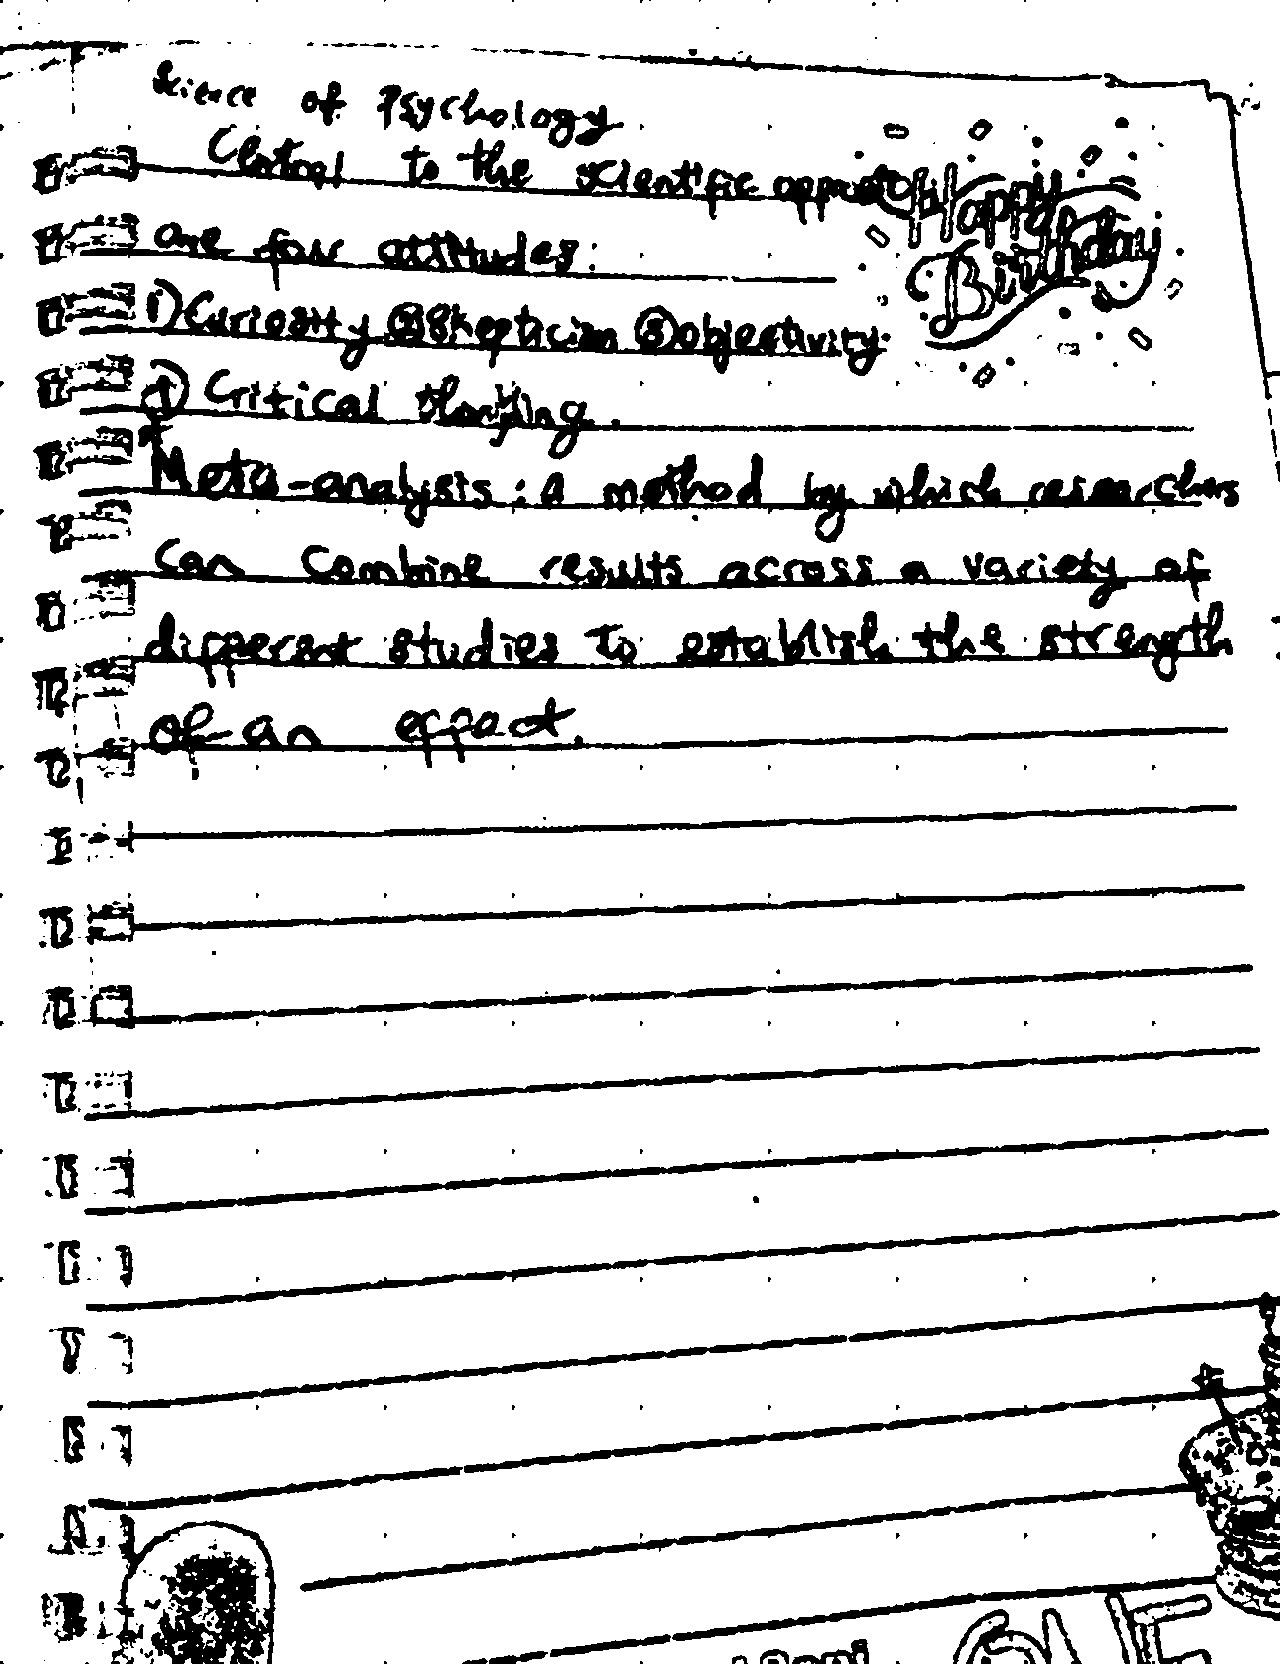 Science of Psychology
Central to the scientific approach
are four attitudes:
① Curiosity ② Skepticism ③ objectivity
④ Critical thinking.
* Meta-analysis: a method by which researchers
can combine results across a variety of
different studies to establish the strength
of an effect.
Happy
Birthday